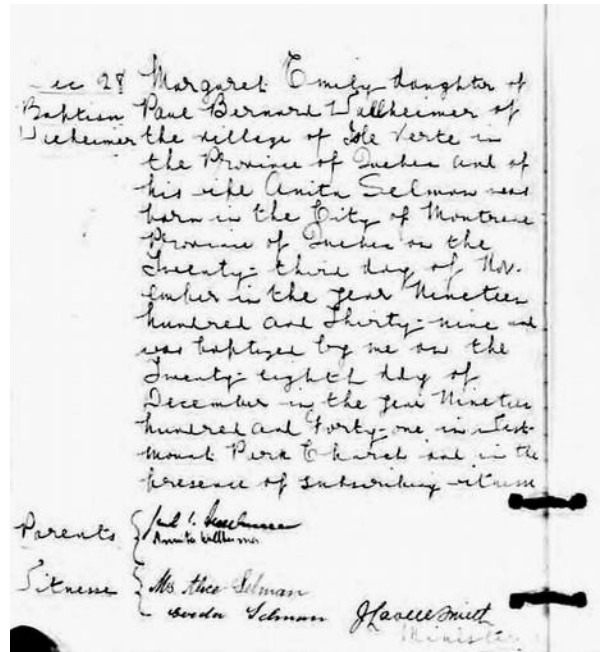 Dec 28 Margaret Emily daughter of
Baptism Paul Bernard Wallheimer of
the village of Isle Verte in
the Province of Quebec and of
his wife Anita Selman was
born in the City of Montreal
Province of Quebec on the
Twenty-third day of Nov-
ember in the year Nineteen
hundred and Thirty-nine and
was baptized by me on the
Twenty-eighth day of
December in the year Nineteen
hundred and Forty-one in West-
mount Park Church and in the
presence of subscribing witness
Parents
Annita Wallheimer
Witness Mrs Alice Selman
Selman J Lavell Smith
Minister